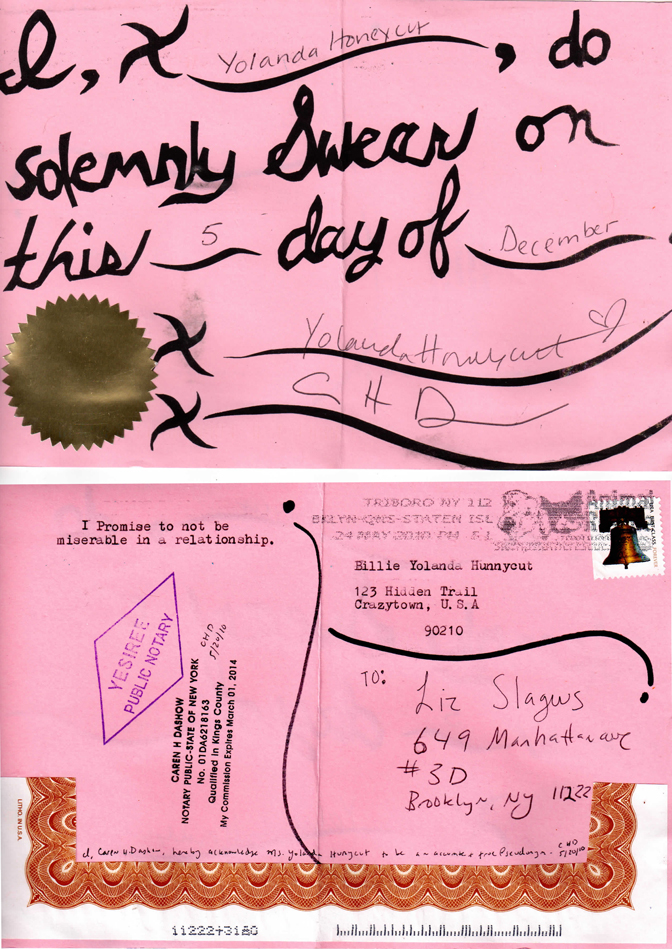 I, X Yolanda Honeycut, do
solemnly Swear on
this 5 day of December
X Yolanda Hunnycut
X CHD
I Promise to not be
miserable in a relationship.
YESIREE
PUBLIC NOTARY
CAREN H DASHOW
NOTARY PUBLIC-STATE OF NEW YORK
No. 01DA6218163
Qualified in Kings County
My Commission Expires March 01, 2014
CHD
5/20/10
TRIBORO NY 112
BKLYN-QNS-STATEN ISL
24 MAY 2010 PM 5 L
Animal
Billie Yolanda Hunnycut
123 Hidden Trail
Crazytown, U.S.A
90210
TO:
Liz Slagus
649 Manhattan ave
#3D
Brooklyn, NY 11222
I, Caren H. Dashow, hereby acknowledge Ms. Yolanda Hunycut to be an accurate + free Pseudonym.
CHD
5/20/10
LITHO. IN U.S.A.
11222+3180